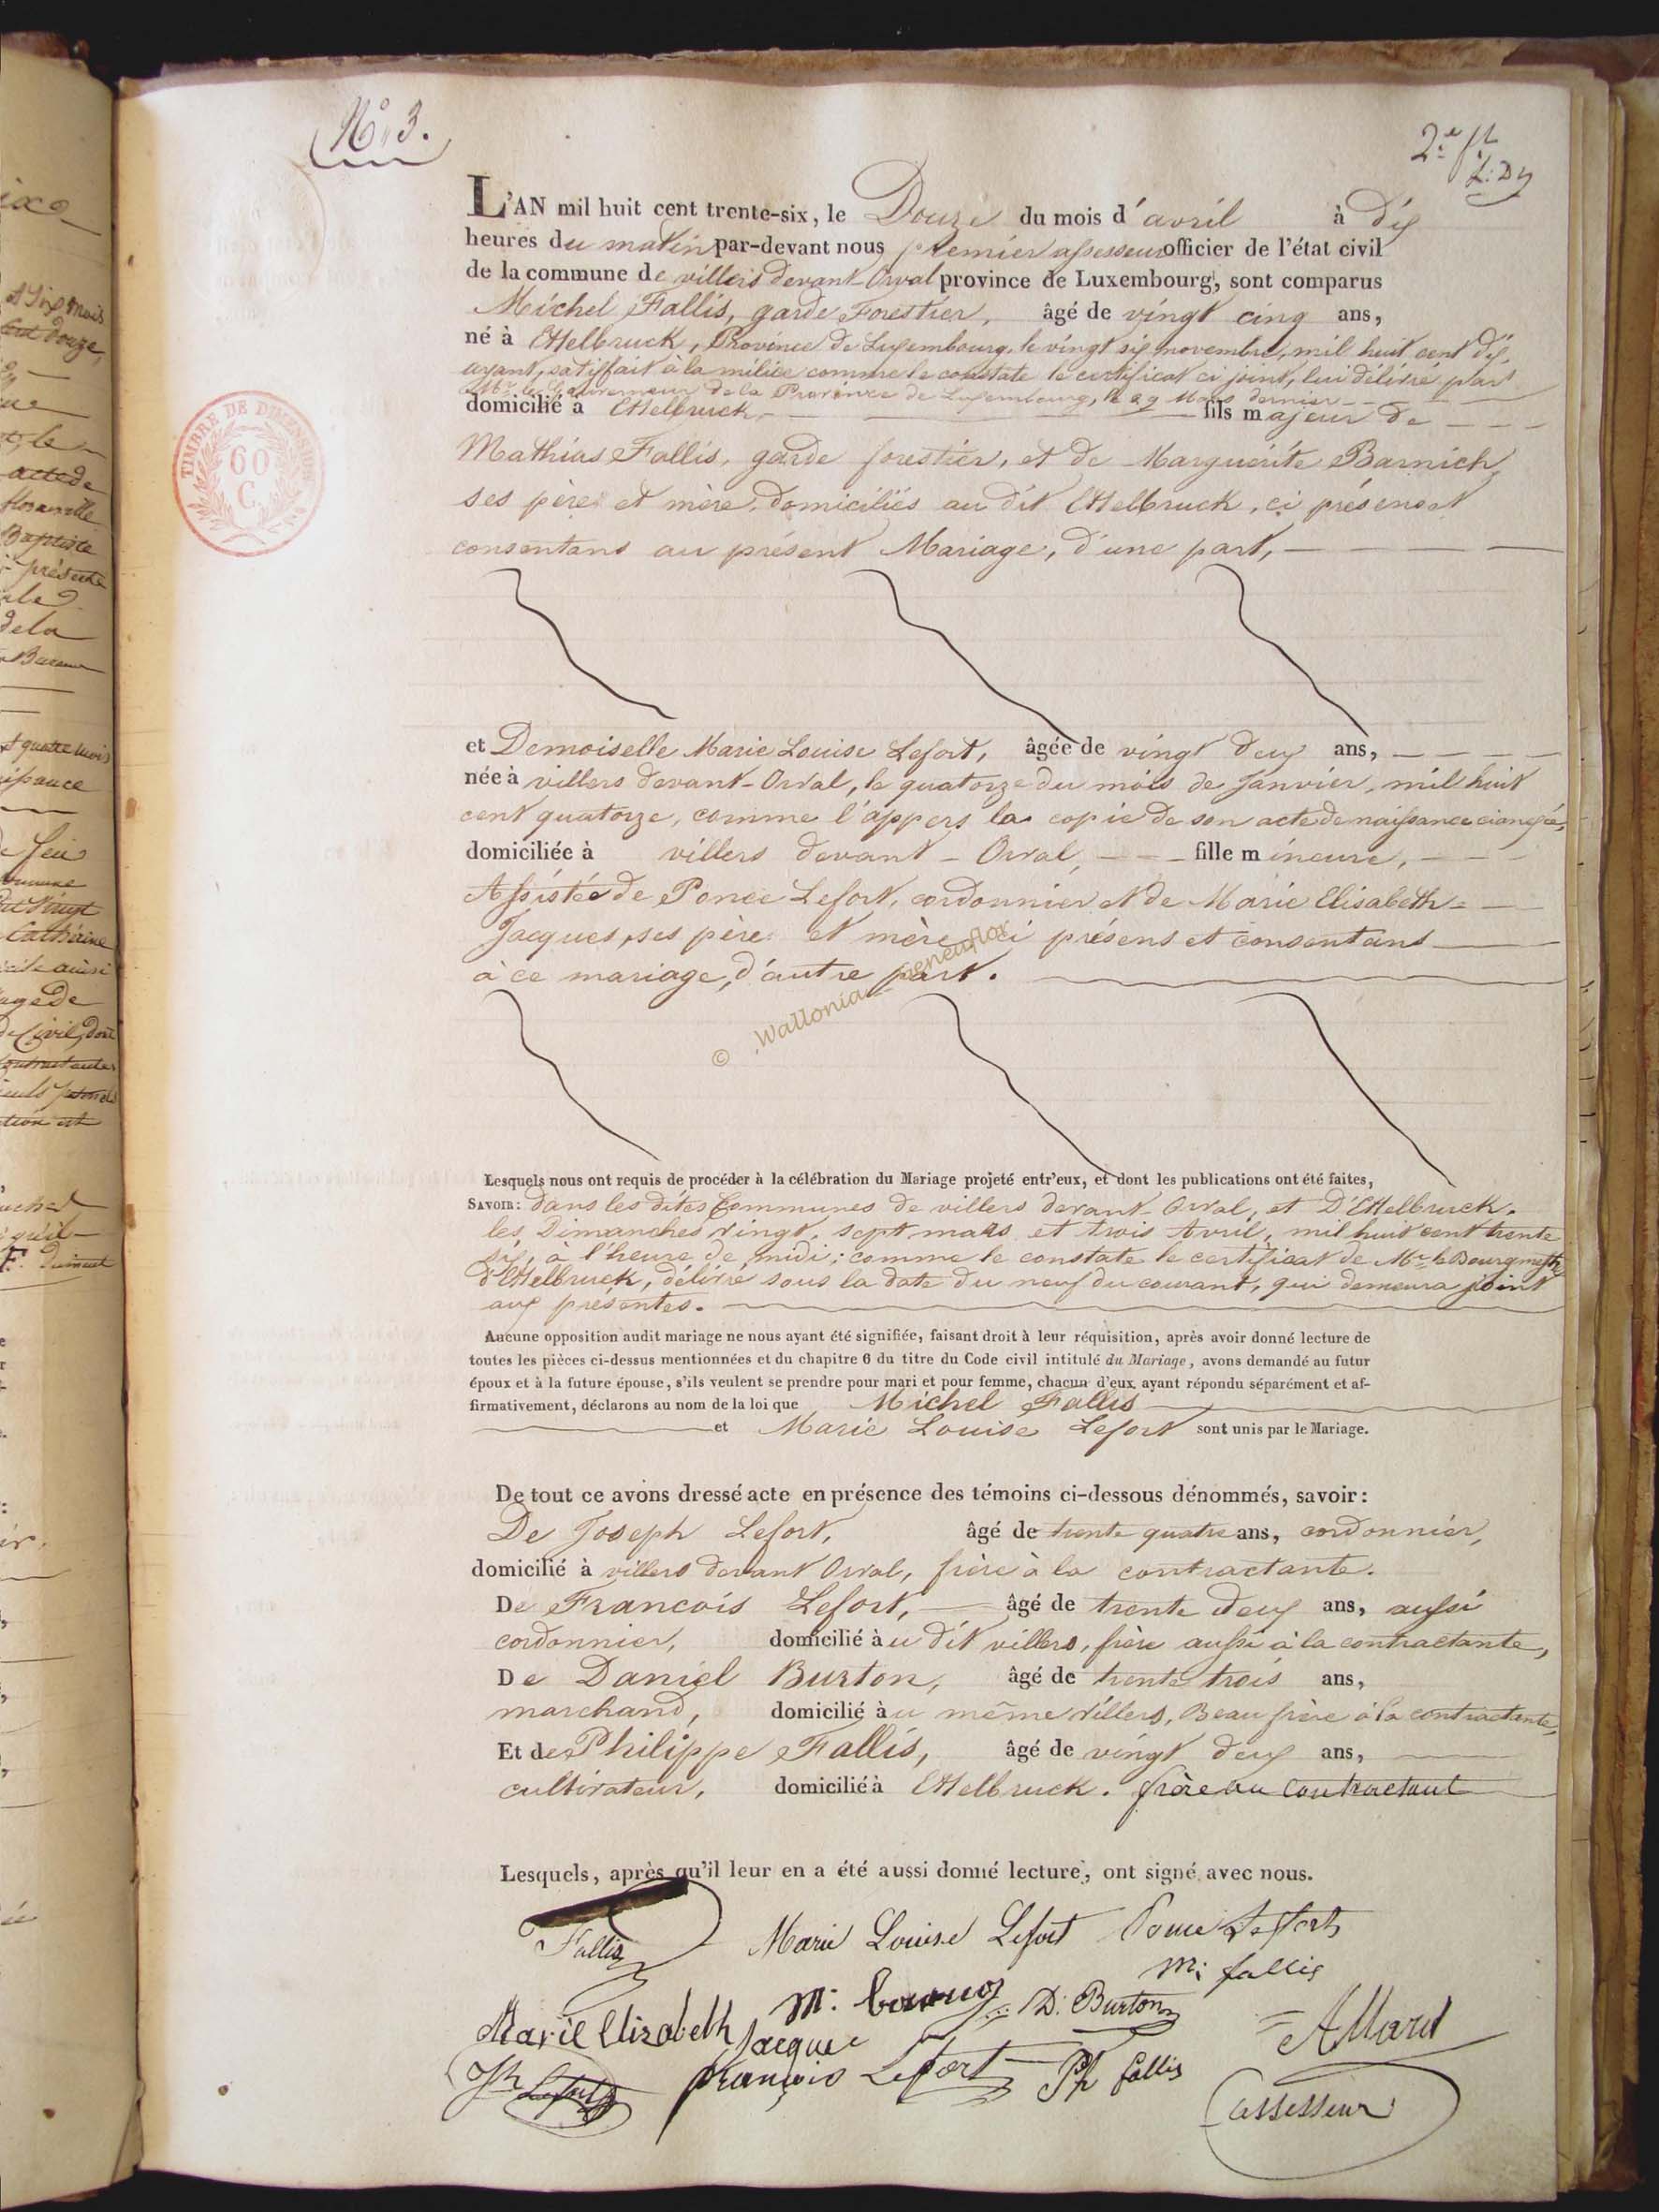 N° 3.
2.e ft
L'AN mil huit cent trente-six, le Douze du mois d'avril à dix
heures du matin par-devant nous premier assesseur officier de l'état civil
de la commune de villers devant-Orval province de Luxembourg, sont comparus
Michel Fallis, garde Forestier, âgé de vingt cinq ans,
né à Ettelbruck, Province de Luxembourg, le vingt six novembre, mil huit cent dix,
ayant, satisfait à la milice comme le constate le certificat ci joint, lui délivré par
Mr. le Gouverneur de la Province de Luxembourg, le 29 Mars dernier
domicilié à Ettelbruck, fils majeur de
Mathias Fallis, garde forestier, et de Marguerite Barnich,
ses père et mère, domiciliés au dit Ettelbruck, ci présens et
consentans au présent Mariage, d'une part,
et Demoiselle Marie Louise Lefort, âgée de vingt deux ans,
née à villers devant-Orval, le quatorze du mois de Janvier, mil huit
cent quatorze, comme l'appers la copie de son acte de naissance ci annexée,
domiciliée à villers devant-Orval, fille mineure,
Assistée de Ponce Lefort, cordonnier et de Marie Elisabeth
Jacques, ses père et mère ci présens et consentans
à ce mariage, d'autre part.
© Wallonia
Lesquels nous ont requis de procéder à la célébration du Mariage projeté entr'eux, et dont les publications ont été faites,
SAVOIR: dans les dites Communes de villers devant-Orval, et D'Ettelbruck.
les Dimanches vingt, sept mars et trois Avril, mil huit cent trente
six, à l'heure de midi; comme le constate le certificat de Mr. le Bourgmestre
d'Ettelbruck, délivré sous la date du neuf du courant, qui demeura joint
aux présentes.
Aucune opposition audit mariage ne nous ayant été signifiée, faisant droit à leur réquisition, après avoir donné lecture de
toutes les pièces ci-dessus mentionnées et du chapitre 6 du titre du Code civil intitulé du Mariage, avons demandé au futur
époux et à la future épouse, s'ils veulent se prendre pour mari et pour femme, chacun d'eux ayant répondu séparément et af-
firmativement, déclarons au nom de la loi que Michel Fallis
et Marie Louise Lefort sont unis par le Mariage.
De tout ce avons dressé acte en présence des témoins ci-dessous dénommés, savoir:
De Joseph Lefort, âgé de trente quatre ans, cordonnier,
domicilié à villers devant Orval, frère à la contractante.
De Francois Lefort, âgé de trente deux ans, aussi
cordonnier, domicilié au dit villers, frère aussi à la contractante,
De Daniel Burton, âgé de trente trois ans,
marchand, domicilié au même villers, Beau frère à la contractante,
Et de Philippe Fallis, âgé de vingt deux ans,
cultivateur, domicilié à Ettelbruck. frère au contractant
Lesquels, après qu'il leur en a été aussi donné lecture, ont signé avec nous.
Fallis Marie Louise Lefort Ponce Lefort
M: fallis
D: Burton
Marie Elizabeth Jacques
Allard
Jh Lefort françois Lefort Ph fallis
assesseur
TIMBRE DE DIMENSION
60
C.